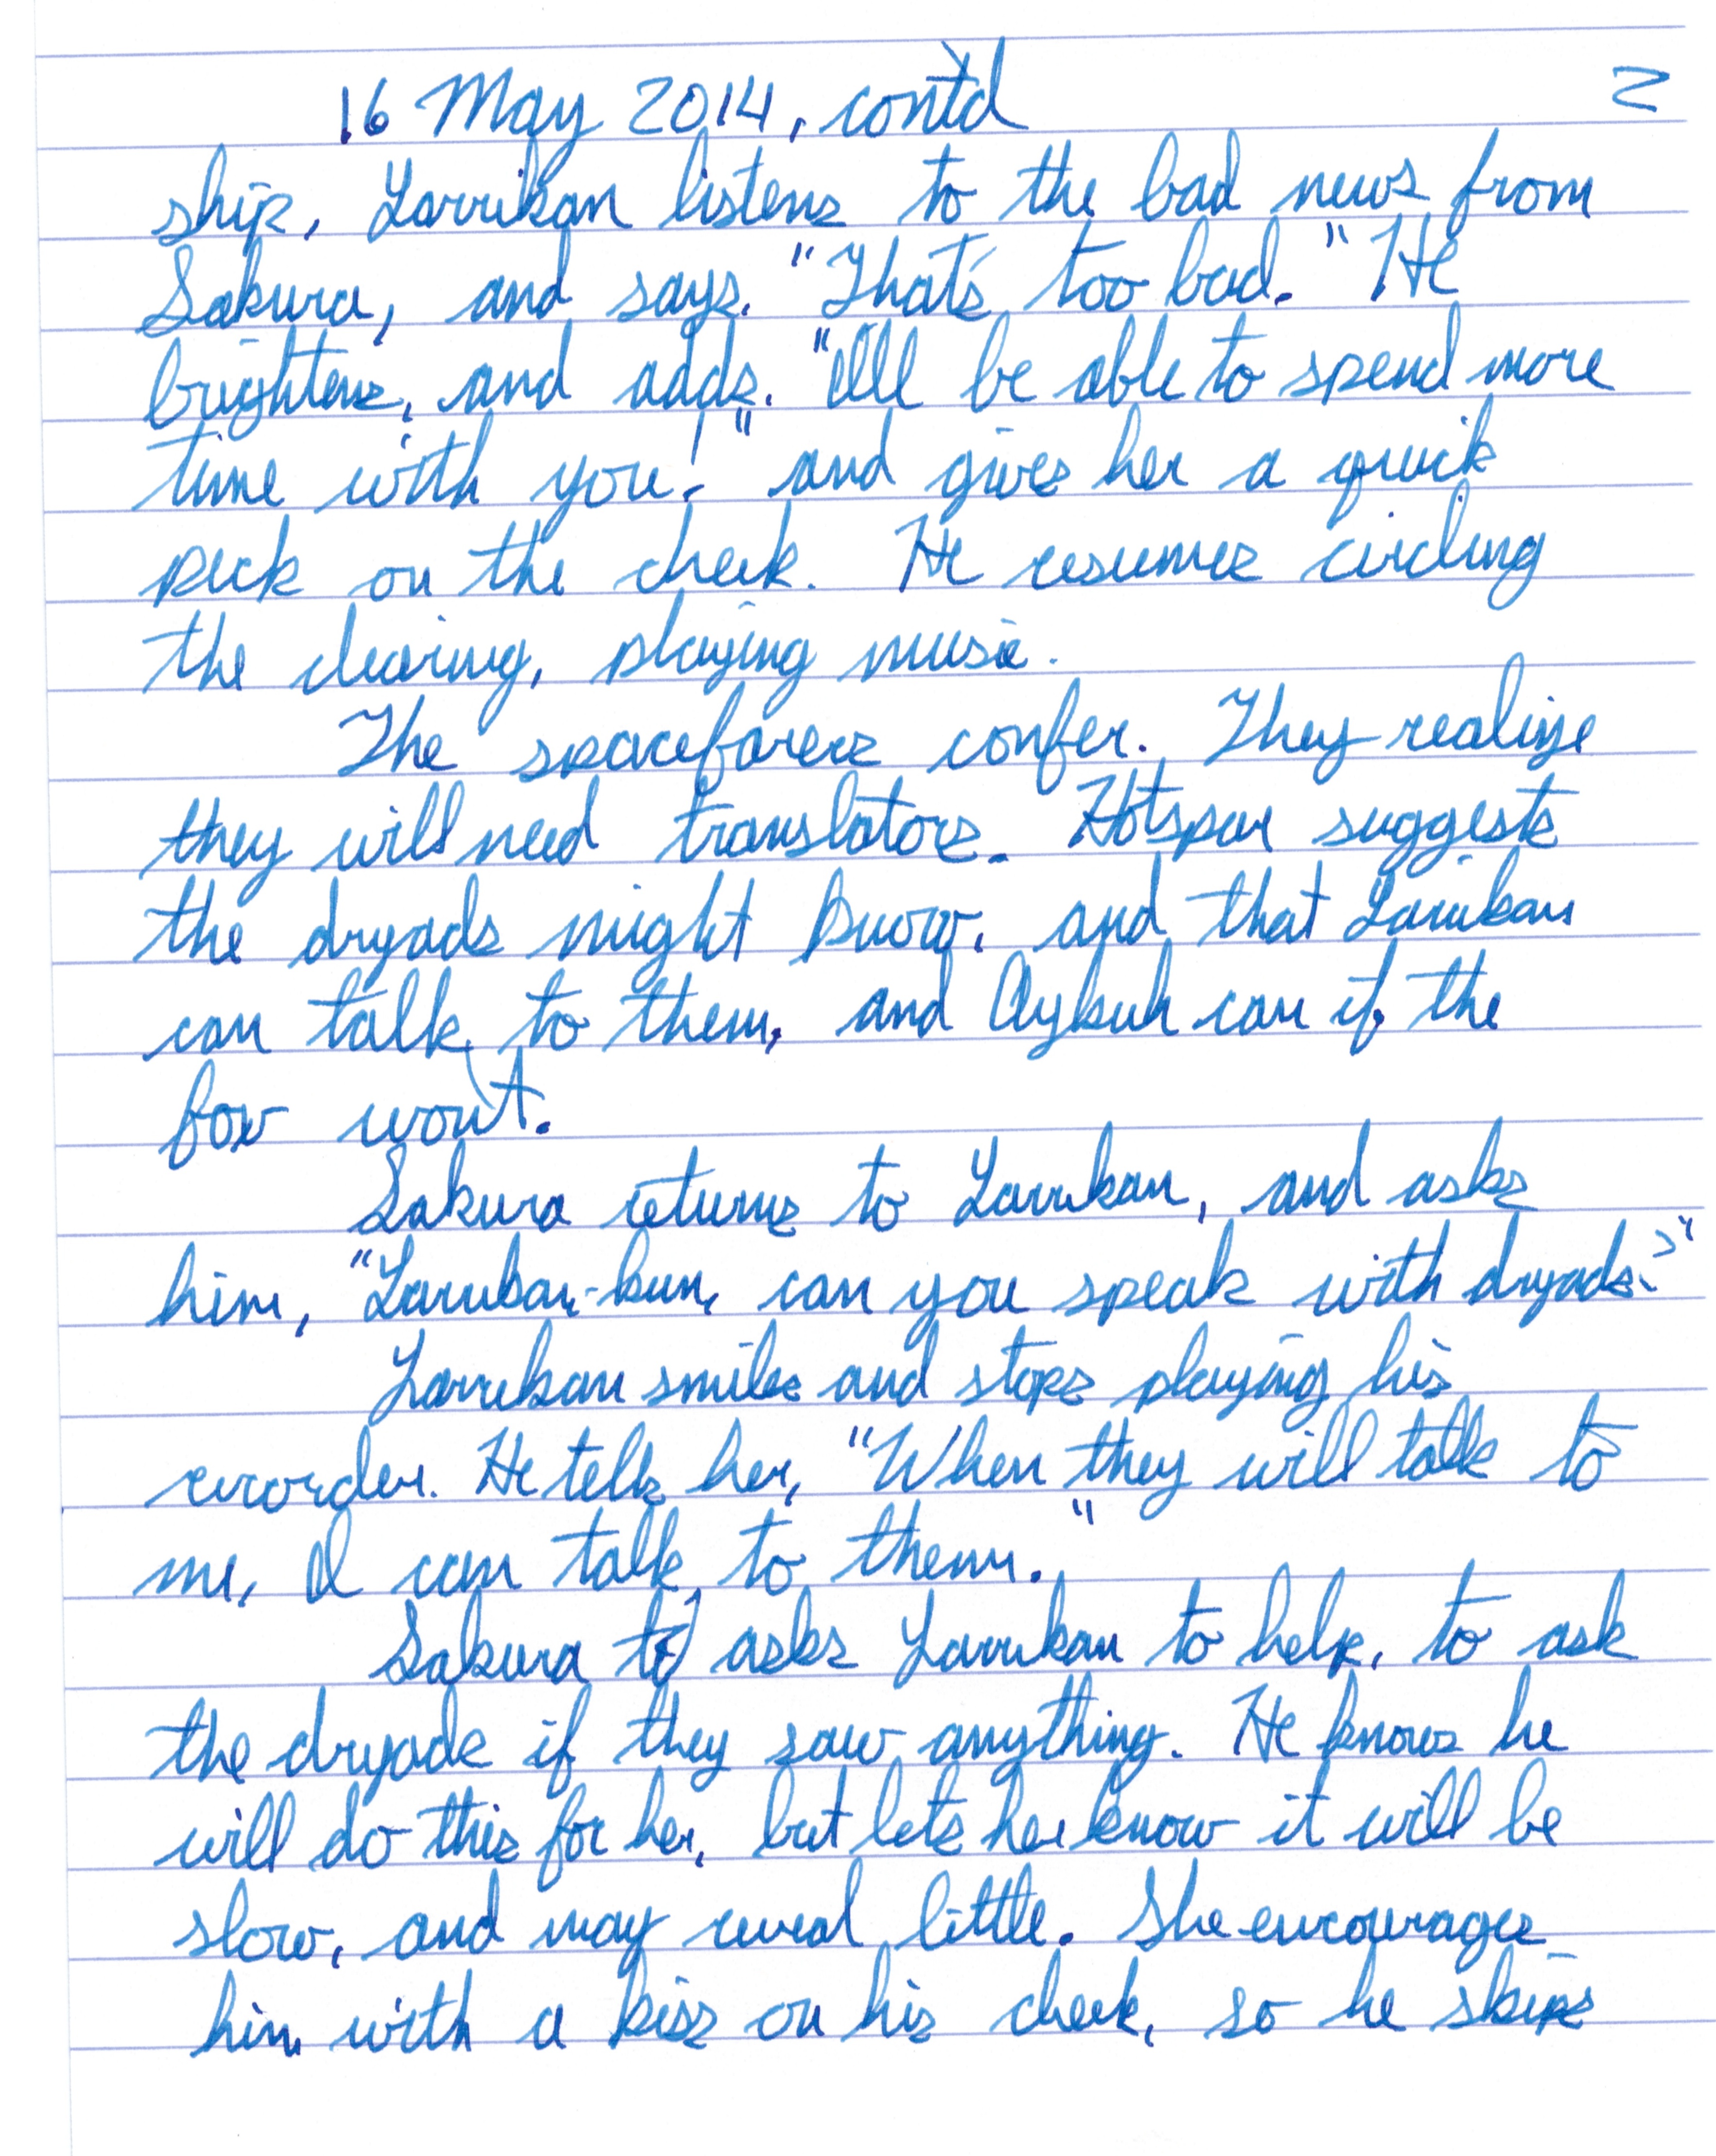 16 May 2014, cont'd 2
ship, Larrikan listens to the bad news from
Sakura, and says, "That's too bad." He
brightens, and adds, "I'll be able to spend more
time with you!" and gives her a quick
peck on the cheek. He resumes circling
the clearing, playing music.
The spacefarers confer. They realize
they will need translators. Hotspur suggests
the dryads might know, and that Larrikan
can talk to them, and Aykuh can if the
fox won't.
Sakura returns to Larrikan, and asks
him, "Larrikan-kun, can you speak with dryads?"
Larrikan smiles and stops playing his
recorder. He tells her, "When they will talk to
me, I can talk to them."
Sakura asks Larrikan to help, to ask
the dryads if they saw anything. He knows he
will do this for her, but lets her know it will be
slow, and may reveal little. She encourages
him with a kiss on his cheek, so he skips